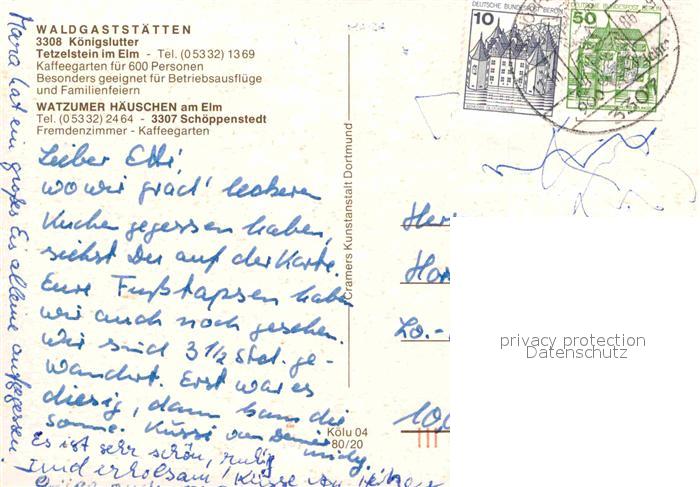 WALDGASTSTÄTTEN
3308 Königslutter
Tetzelstein im Elm - Tel. (0 53 32) 13 69
Kaffeegarten für 600 Personen
Besonders geeignet für Betriebsausflüge
und Familienfeiern
WATZUMER HÄUSCHEN am Elm
Tel. (0 53 32) 24 64 - 3307 Schöppenstedt
Fremdenzimmer - Kaffeegarten
Lieber Etti,
wo wir grad' leckeren
Kuchen gegessen haben,
siehst Du auf der Karte.
Eure Fußstapfen haben
wir auch noch gesehen.
Wir sind 3 1/2 Std. ge-
wandert. Erst war es
diesig, dann kam die
Sonne.
Es ist sehr schön, ruhig
und erholsam!
Mara hat ein großes Eis alleine aufgegessen.
Cramers Kunstanstalt Dortmund
Kölu 04
80/20
DEUTSCHE BUNDESPOST BERLIN
10
DEUTSCHE BUNDESPOST
50
3301
Lo.-
100
privacy protection
Datenschutz